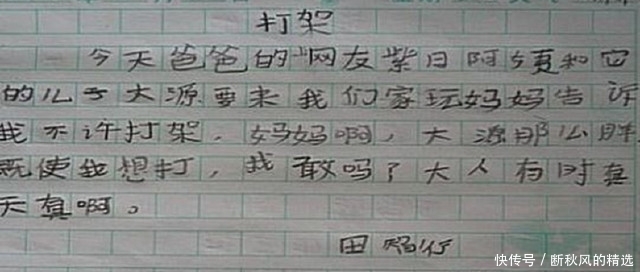 打架
今天爸爸的"网友紫日阿须和它
的儿子大源要来我们家玩妈妈告诉
我不许打架，妈妈啊，大源那么胖
既使我想打，我敢吗？大人有时真
天真啊。
田
快传号／断秋风的精选